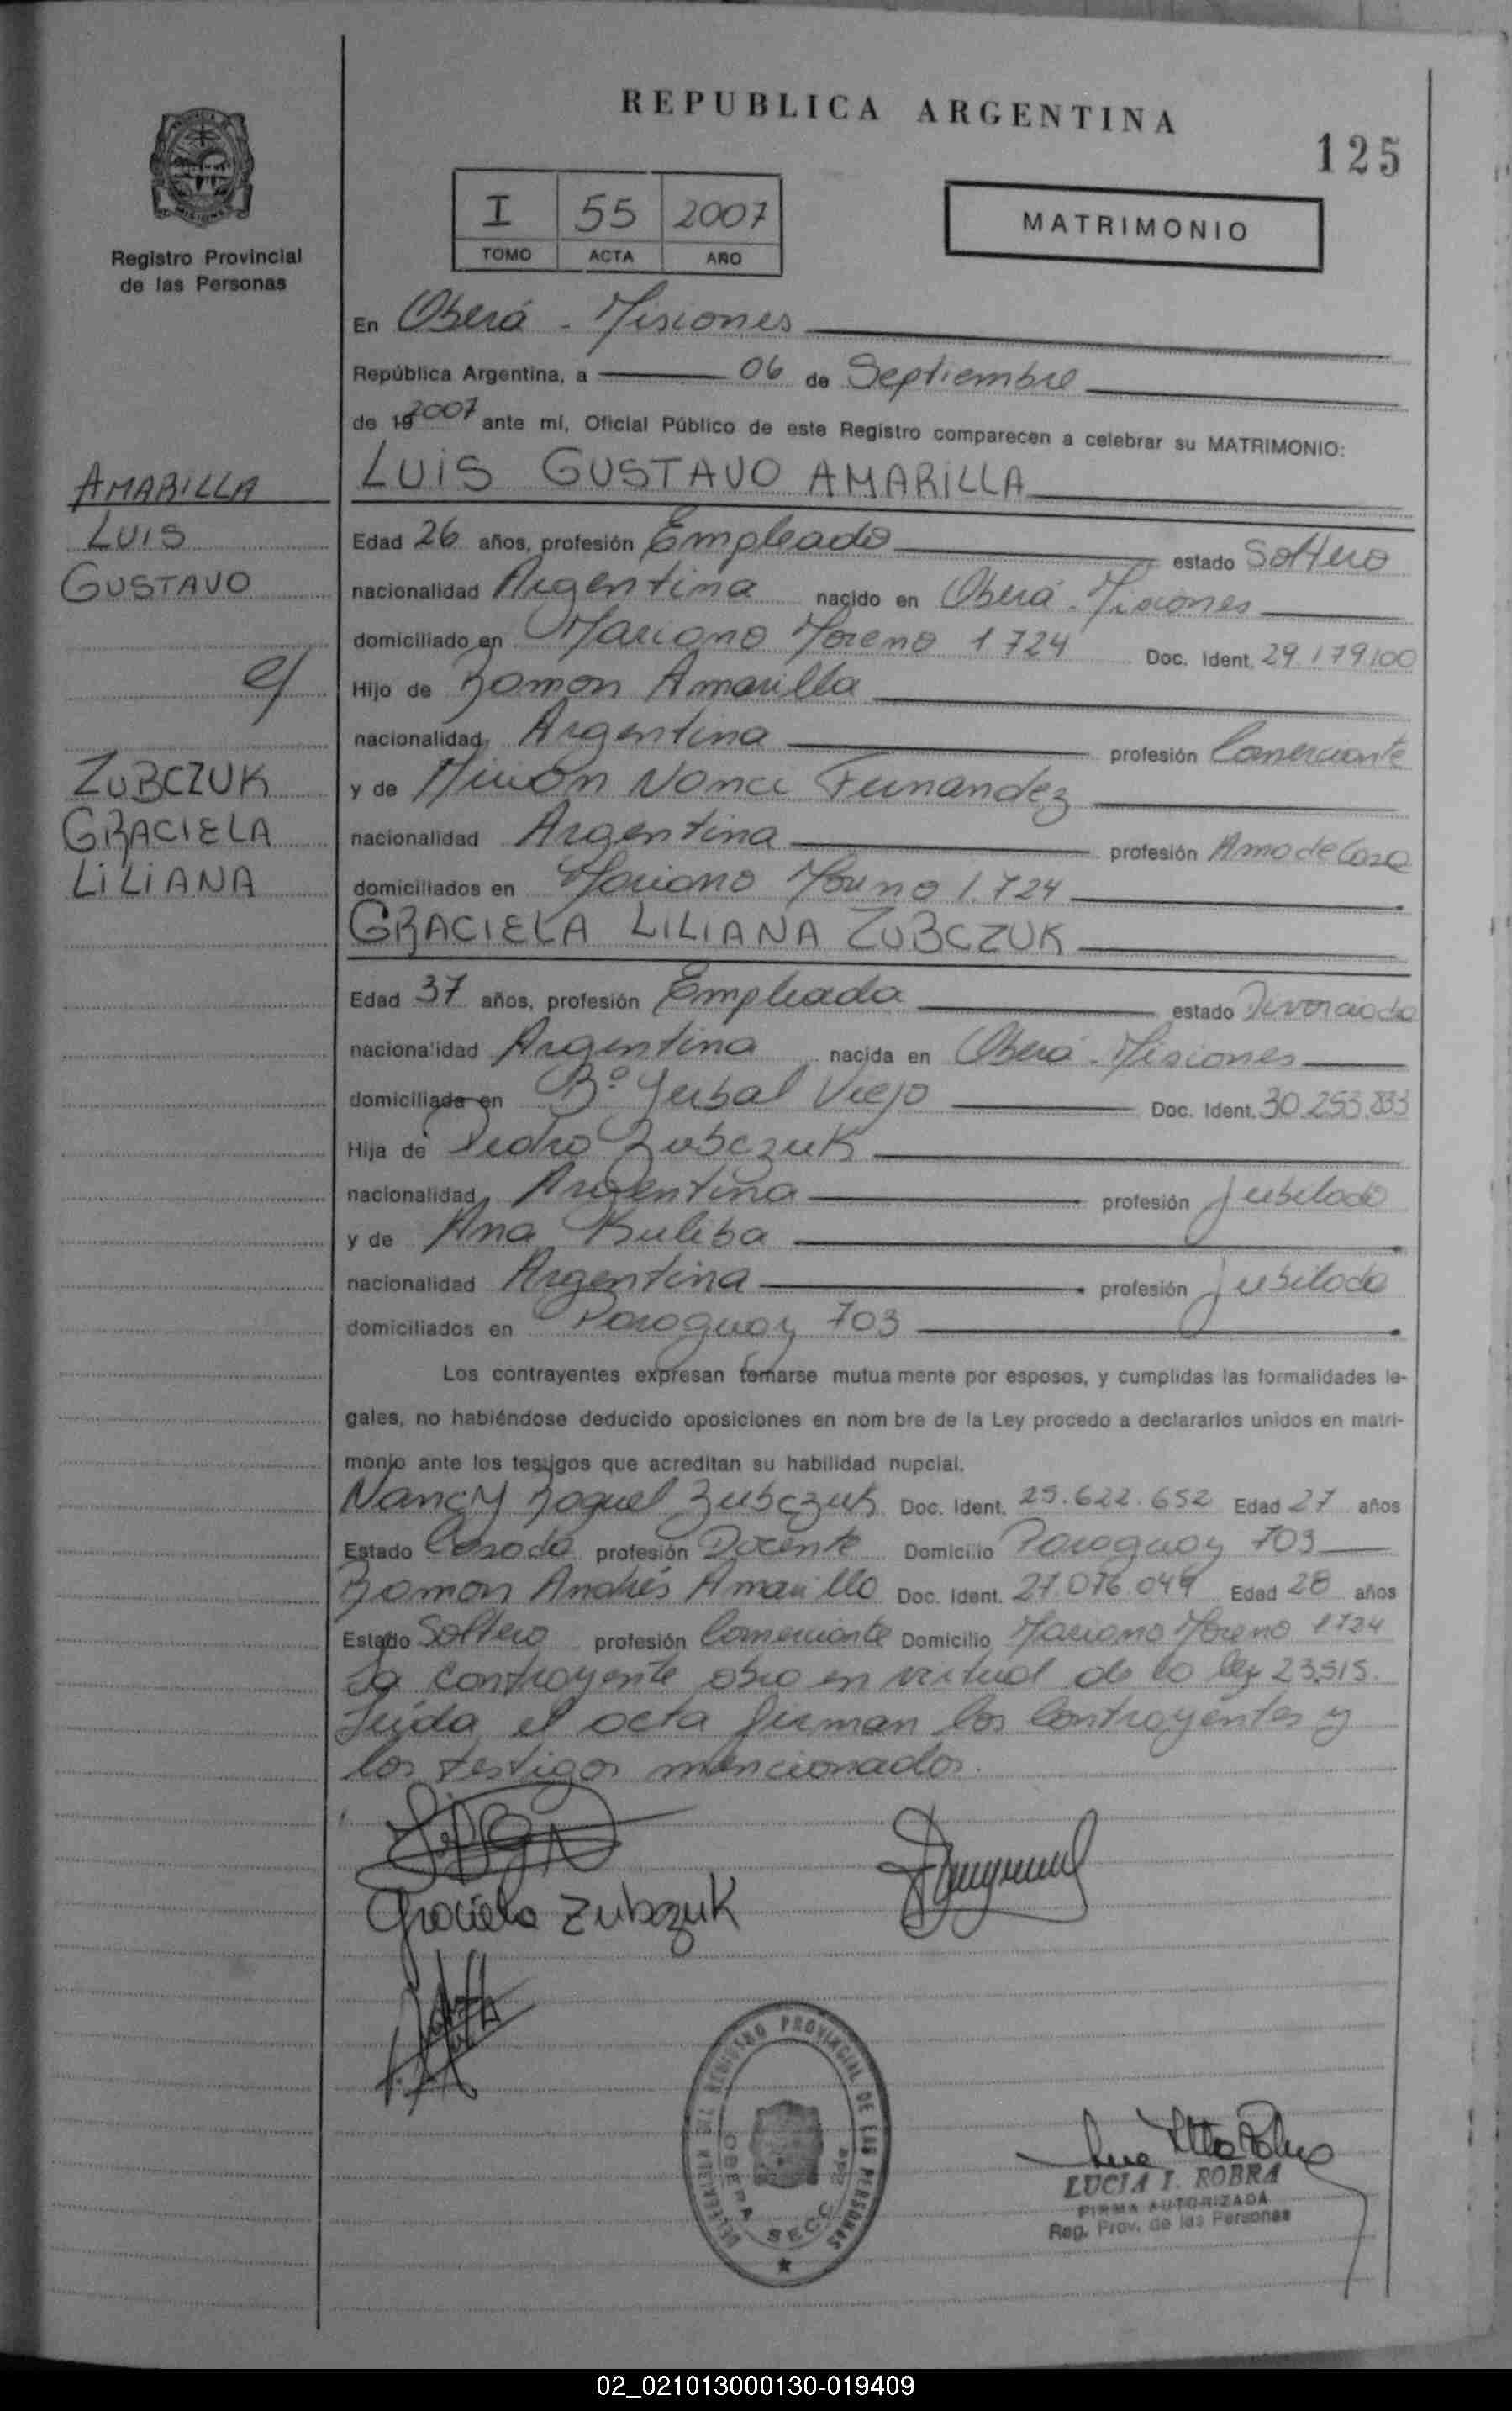 REPUBLICA ARGENTINA
125
I 55 2007
TOMO ACTA AÑO
MATRIMONIO
Registro Provincial
de las Personas
En Oberá - Misiones
República Argentina, a 06 de Septiembre
de 19 2007 ante mí, Oficial Público de este Registro comparecen a celebrar su MATRIMONIO:
AMARILLA
LUIS
GUSTAVO
c/
ZUBCZUK
GRACIELA
LILIANA
LUIS GUSTAVO AMARILLA
Edad 26 años, profesión Empleado estado Soltero
nacionalidad Argentina nacido en Oberá - Misiones
domiciliado en Mariano Moreno 1724 Doc. Ident. 29.179.100
Hijo de Ramon Amarilla
nacionalidad Argentina profesión Comerciante
y de Nanci Fernandez
nacionalidad Argentina profesión Ama de Casa
domiciliados en Mariano Moreno 1.724
GRACIELA LILIANA ZUBCZUK
Edad 37 años, profesión Empleada estado Divorciada
nacionalidad Argentina nacida en Oberá - Misiones
domiciliada en Bº Yerbal Viejo Doc. Ident. 30.255.
Hija de Pedro Zubczuk
nacionalidad Argentina profesión Jubilado
y de Ana Kuliba
nacionalidad Argentina profesión Jubilada
domiciliados en Paraguay 703
Los contrayentes expresan tomarse mutua mente por esposos, y cumplidas las formalidades le-
gales, no habiéndose deducido oposiciones en nom bre de la Ley procedo a declararlos unidos en matri-
monio ante los testigos que acreditan su habilidad nupcial.
Nancy Raquel Zubczuk Doc. Ident. 25.622.652 Edad 27 años
Estado Casada profesión Docente Domicilio Paraguay 703
Ramon Andrés Amarilla Doc. Ident. 27.076.049 Edad 28 años
Estado Soltero profesión Comerciante Domicilio Mariano Moreno 1724
La contrayente obro en virtud de la ley 23.515.
Leída el acta firman los contrayentes y
los testigos mencionados.
Graciela Zubczuk
REGISTRO PROVINCIAL DE LAS PERSONAS
OBERA SECC
LUCIA I. ROBRA
FIRMA AUTORIZADA
Reg. Prov. de las Personas
02_021013000130-019409